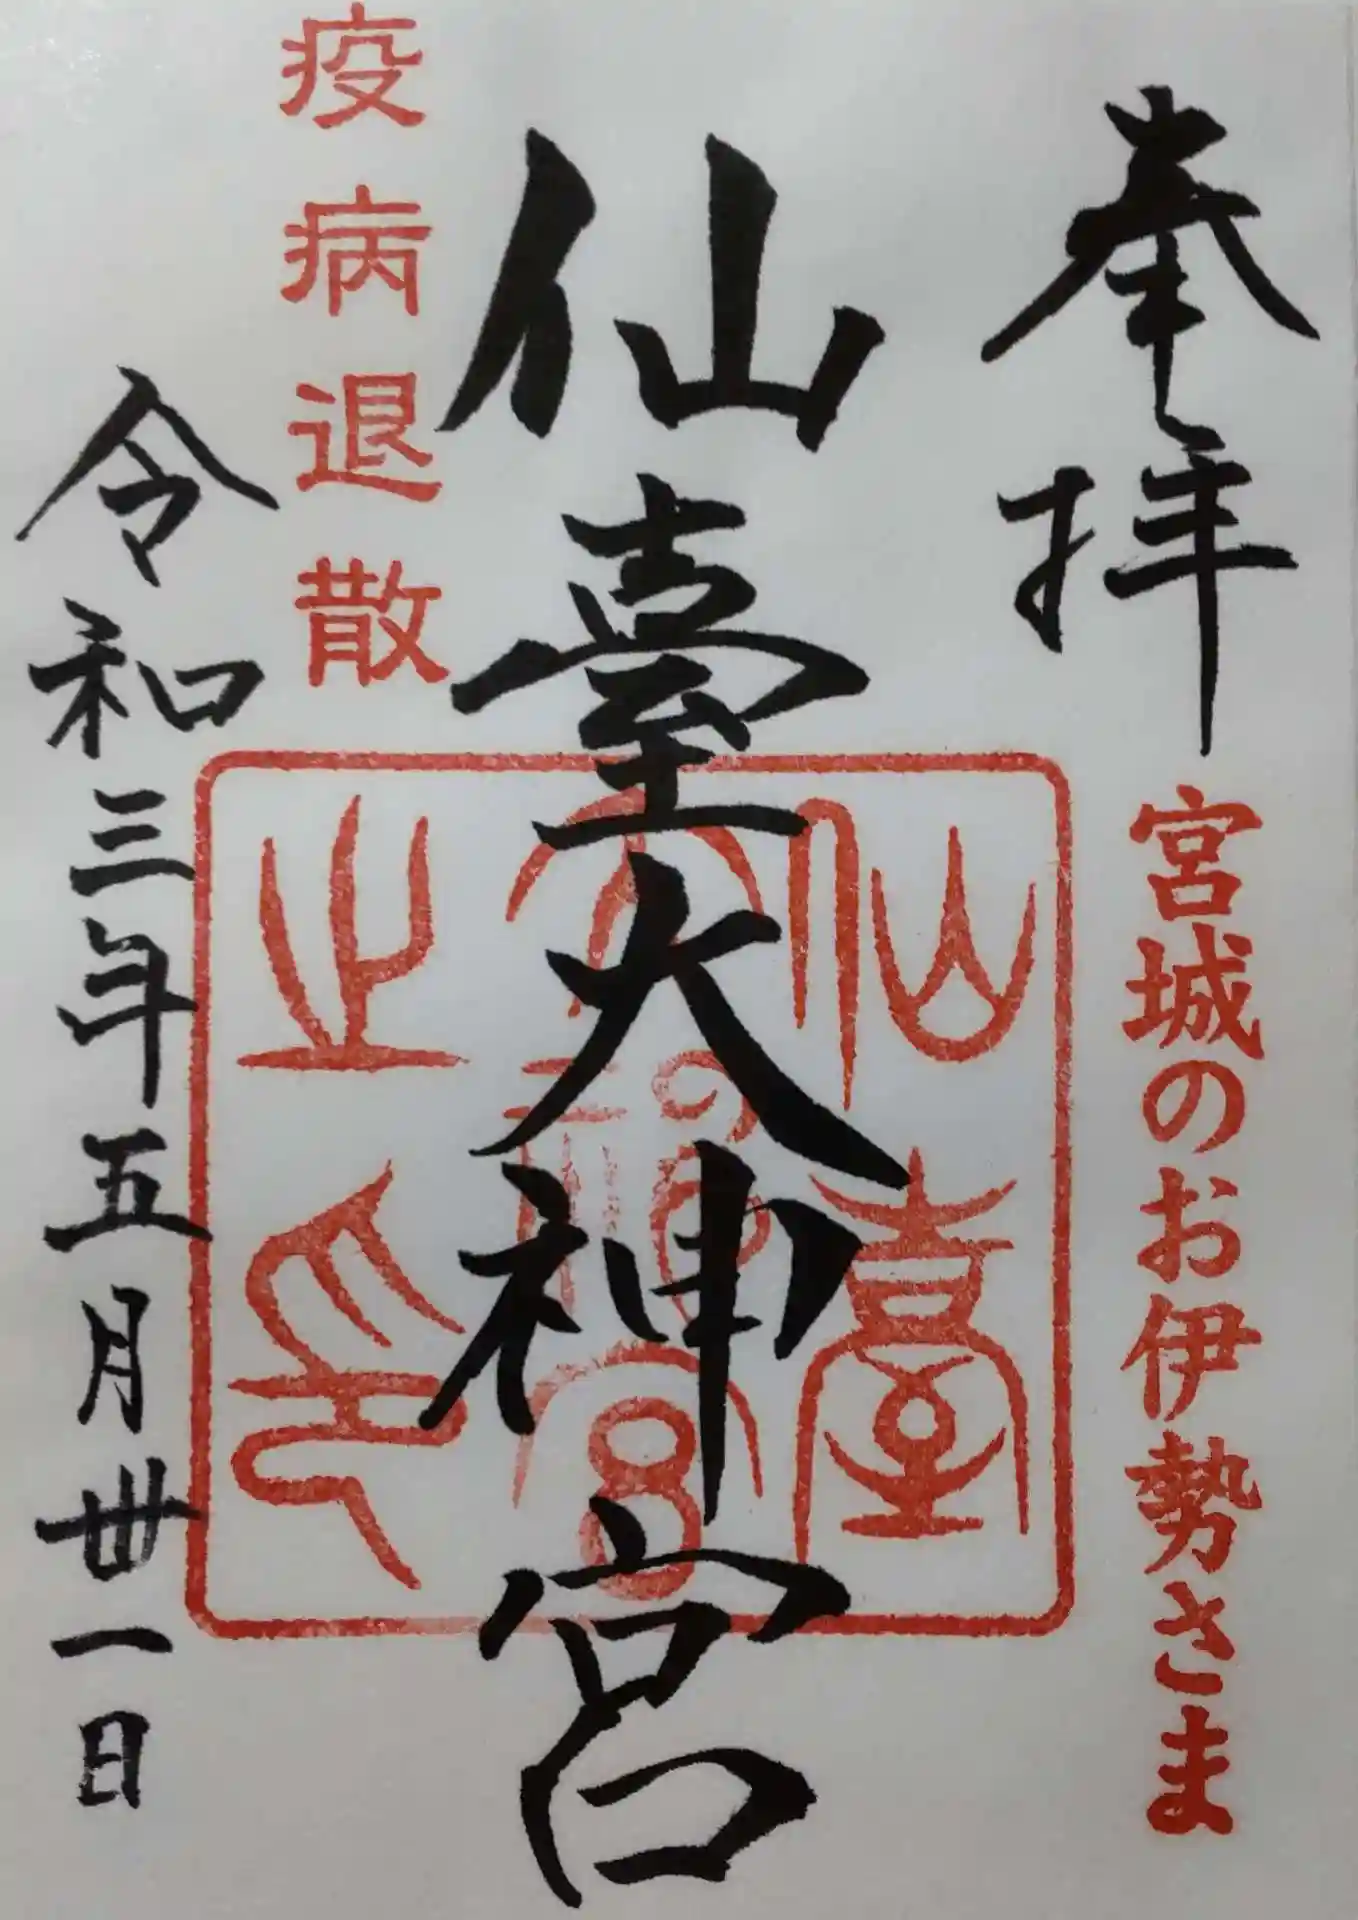 奉拝
宮城のお伊勢さま
仙臺大神宮
仙臺
大神宮
之印
疫病退散
令和三年五月丗一日